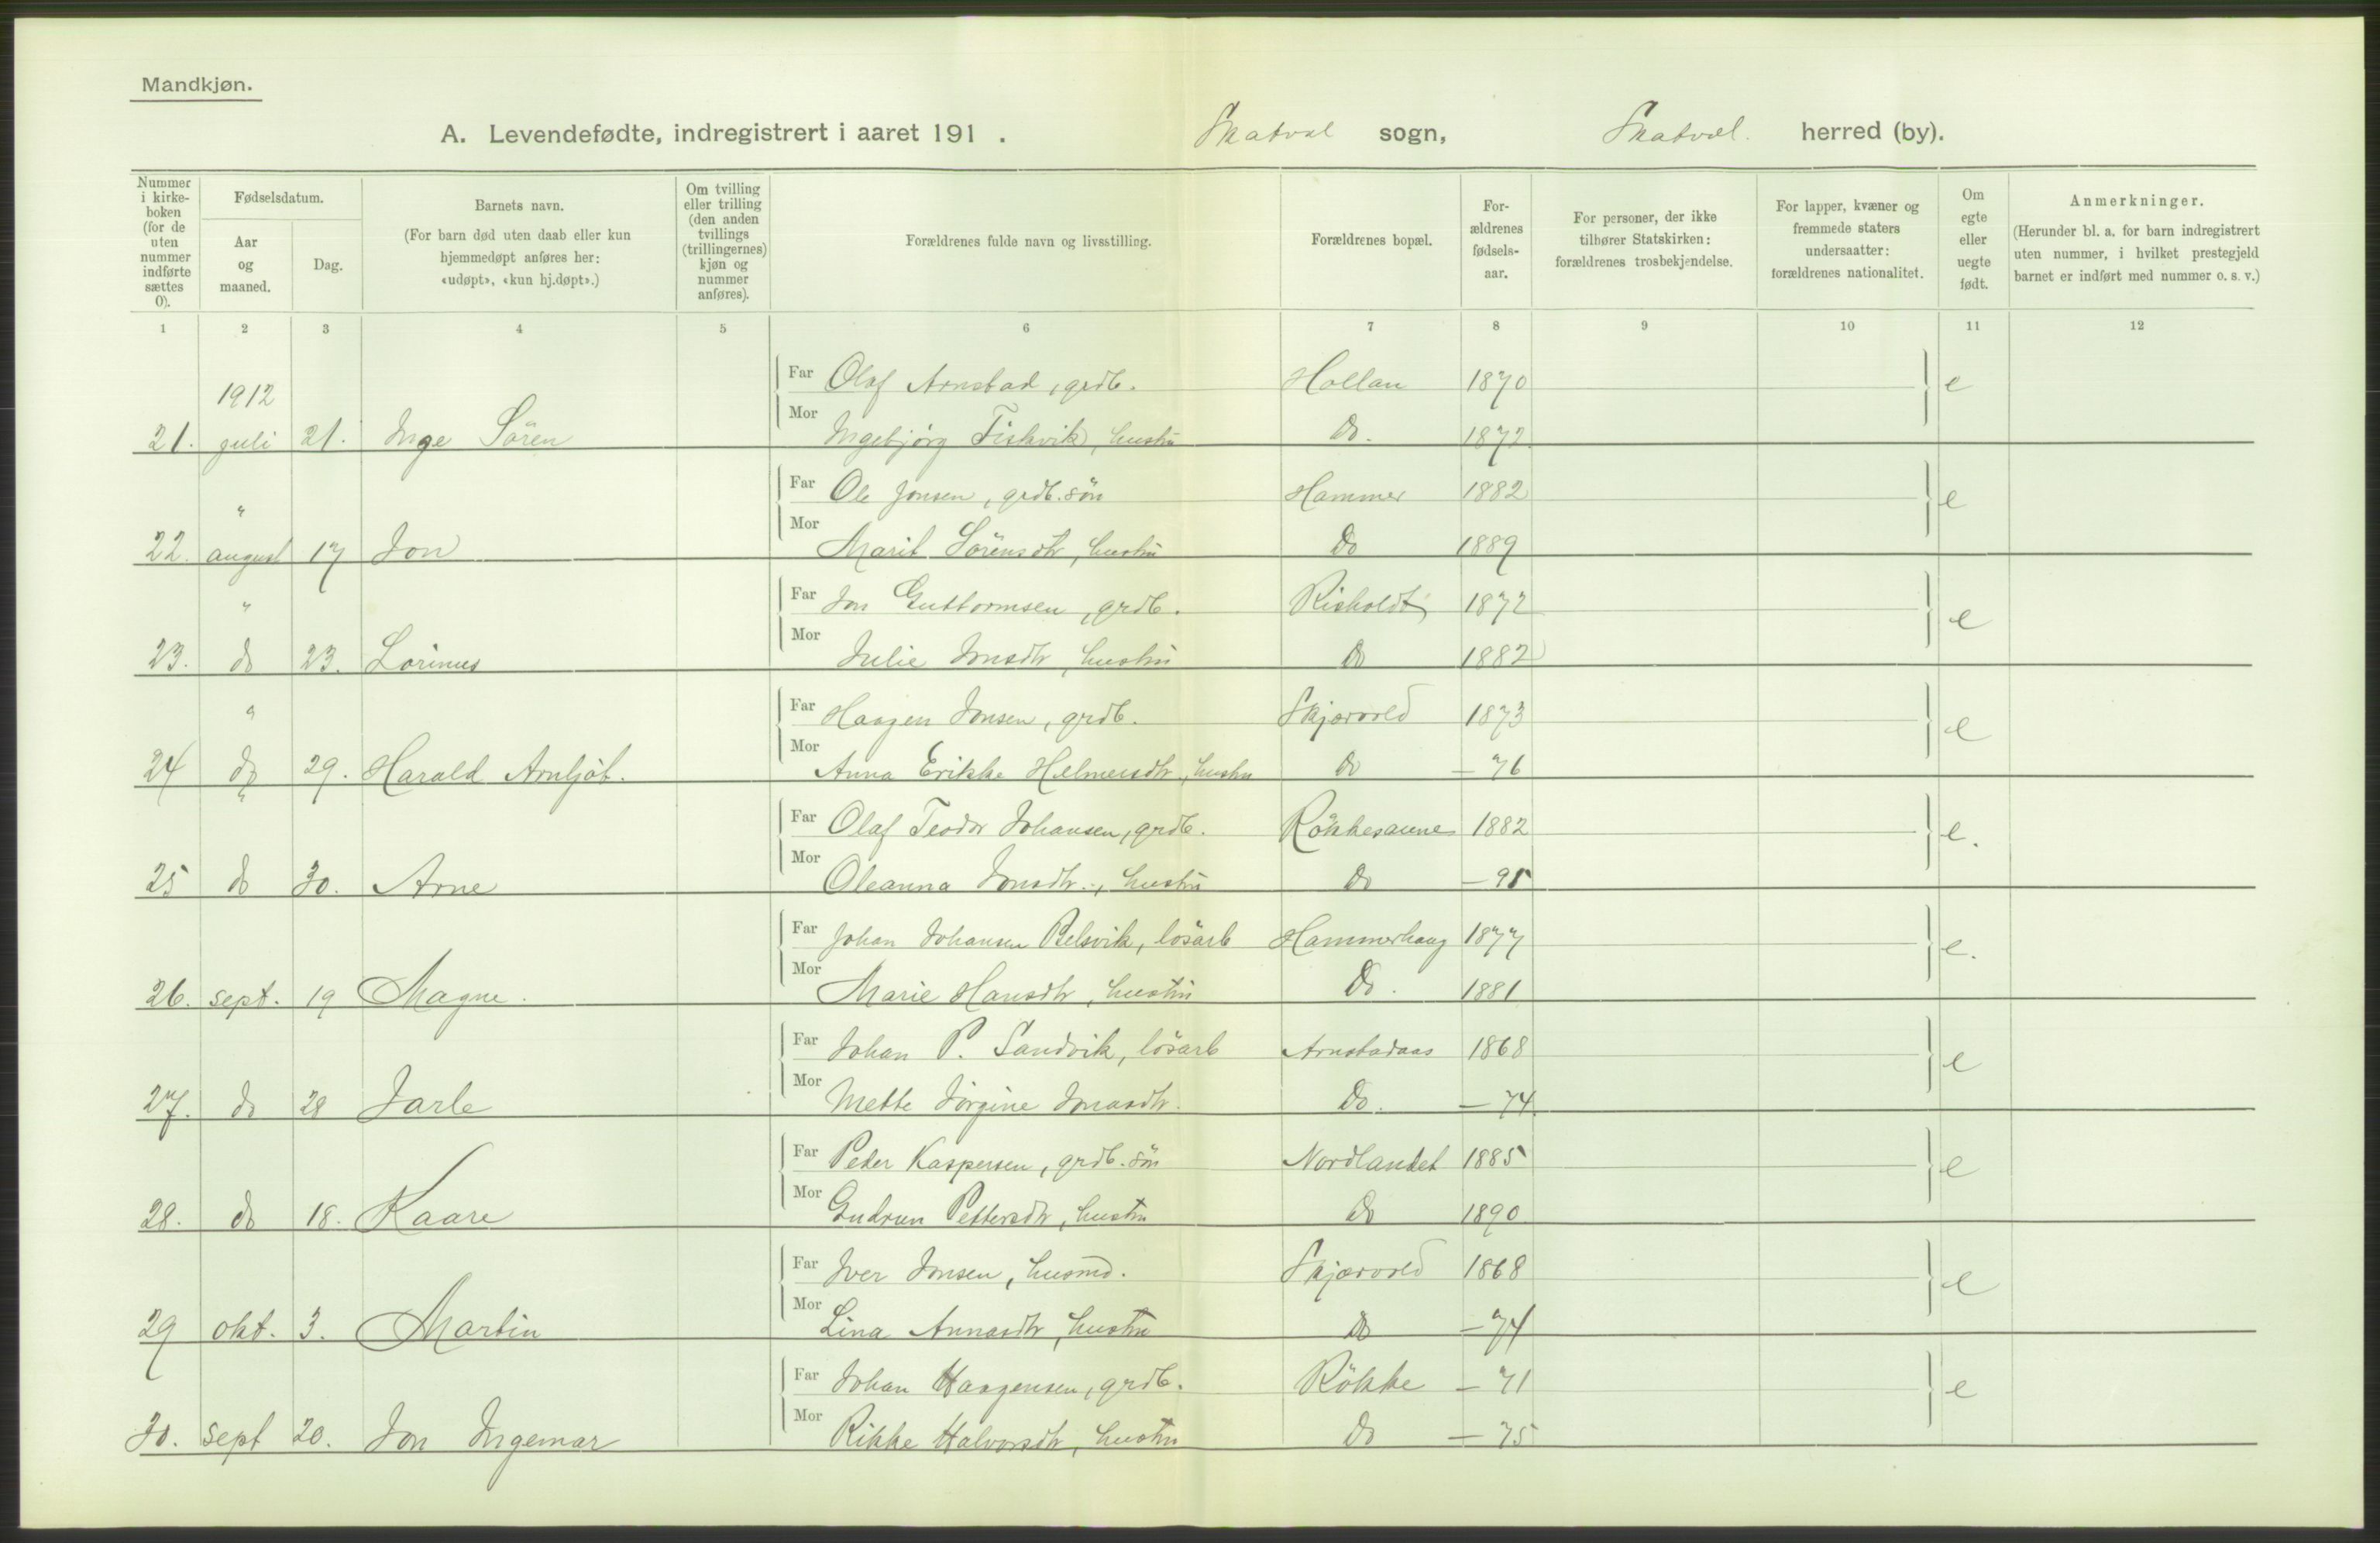 Mandkjøn.
A. Levendefødte, indregistrert i aaret 191 . Skatval sogn, Skatval. herred (by).
Nummer i kirke-boken (for de uten nummer indførte sættes 0).
Fødselsdatum.
Aar og maaned.
Dag.
Barnets navn.
(For barn død uten daab eller kun hjemmedøpt anføres her: «udøpt», «kun hj.døpt».)
Om tvilling eller trilling (den anden tvillings (trillingernes) kjøn og nummer anføres).
Forældrenes fulde navn og livsstilling.
Forældrenes bopæl.
For-ældrenes fødsels-aar.
For personer, der ikke tilhører Statskirken: forældrenes trosbekjendelse.
For lapper, kvæner og fremmede staters undersaatter: forældrenes nationalitet.
Om egte eller uegte født.
Anmerkninger.
(Herunder bl. a. for barn indregistrert uten nummer, i hvilket prestegjeld barnet er indført med nummer o. s. v.)
1 2 3 4 5 6 7 8 9 10 11 12
1912
Far Olaf Arnstad, grdb. Hollan 1870 e
21. juli 21. Inge Sören Mor Ingebjörg Fiskvik, hustru Do. 1872
" Far Ole Jonsen, grdb. sön Hammer 1882 e
22. august 17 Jon Mor Marit Sörensdtr, hustru Do 1889
" Far Jon Guttormsen, grdb. Risholdt 1872 e
23. do 23. Lorinus Mor Julie Jonsdtr, hustru Do 1882
" Far Haagen Jonsen, grdb. Skjervold 1873 e
24 do 29. Harald Arnljót. Mor Anna Erikke Helmersdtr, hustru Do — 76
" Far Olaf Teodor Johansen, grdb. Rökkesaune 1882 e.
25 do 30. Arne Mor Oleanna Jonsdtr., hustru Do — 95
Far Johan Johansen Belsvik, lösarb Hammerhaug 1877 e.
26. sept. 19 Magne. Mor Marie Hansdtr, hustru Do. 1881
Far Johan P. Sandvik, lösarb Arnstadaas 1868 e
27. do 28 Jarle Mor Mette Jörgine Jonasdtr. Do. — 74
Far Peder Kaspersen, grdb. sön Nordlandet 1885 e
28. do 18. Kaare Mor Gudrun Pettersdtr, hustru Do 1890
Far Iver Jonsen, husmd. Skjervold 1868 e
29 okt. 3. Martin Mor Lina Annasdtr, hustru Do — 74
Far Johan Haagensen, grdb. Rökke — 71 e
30. sept 20. Jon Ingemar Mor Rikke Halvorsdtr, hustru Do — 75